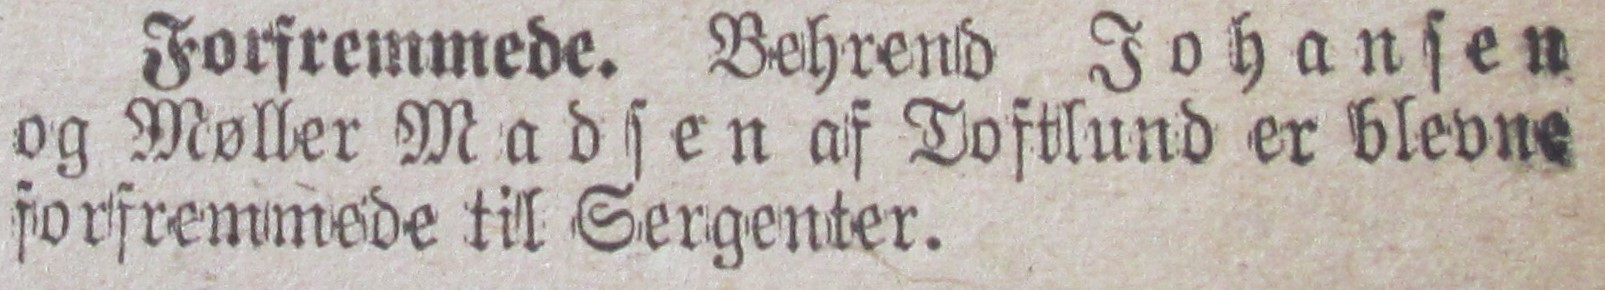 Forfremmede. Behrend Johansen
og Møller Madsen af Toftlund er blevne
forfremmede til Sergenter.